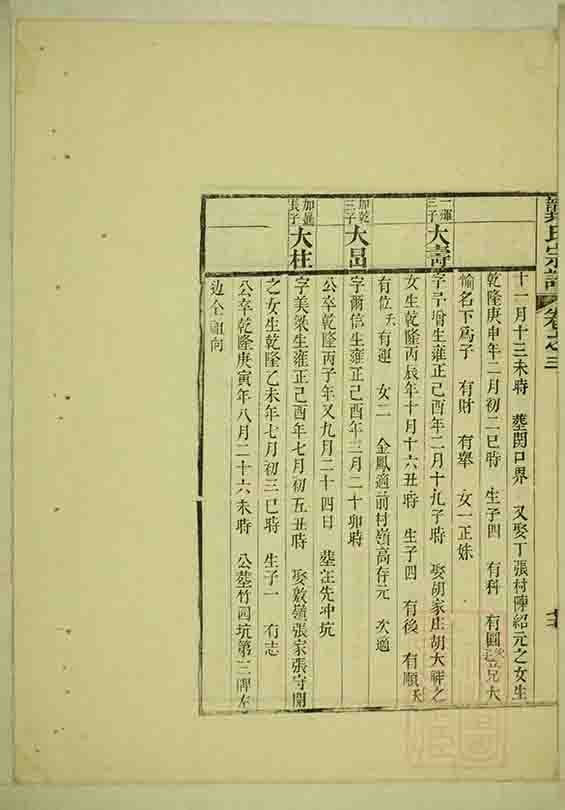 龔氏宗譜 卷之三
十一月十三未時 塟閉口界 又娶丁張村陳紹元之女生
乾隆庚申年二月初二巳時 生子四 有科 有圓 兄大
愉名下爲子 有財 有舉 女一正妹
一運三子 大壽 字 增生雍正己酉年二月十九子時 娶胡家庄胡大祥之
女生乾隆丙辰年十月十六丑時 生子四 有後 有順夭
有位夭 有運 女二 金鳳適前村嶺高存元 次適
加乾三子 大昌 字爾信生雍正己酉年三月二十卯時
公卒乾隆丙子年又九月二十四日 塟汪先冲坑
加 長子 大柱 字美梁生雍正己酉年七月初五丑時 娶敖嶺張家張守開
之女生乾隆乙未年七月初三巳時 生子一 有志
公卒乾隆庚寅年八月二十六未時 公塟竹园坑第三 左
边 向